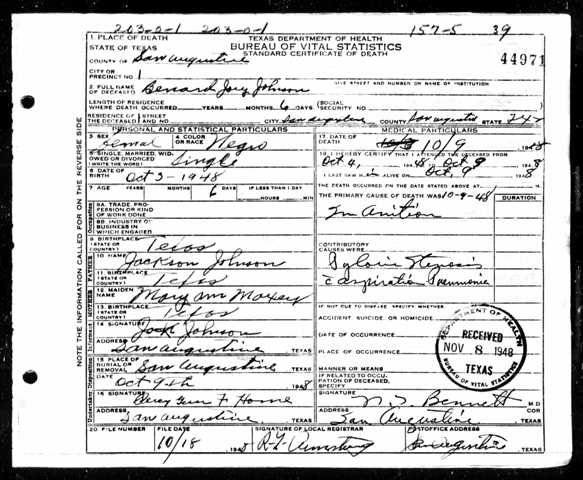 203-0-1 203-0-1 157-5 39
1 PLACE OF DEATH
STATE OF TEXAS
TEXAS DEPARTMENT OF HEALTH
BUREAU OF VITAL STATISTICS
STANDARD CERTIFICATE OF DEATH
44971
COUNTY OF San Augustine
CITY OR
PRECINCT NO. 1
GIVE STREET AND NUMBER OR NAME OF INSTITUTION
2 FULL NAME
OF DECEASED Johnson
LENGTH OF RESIDENCE
WHERE DEATH OCCURRED YEARS MONTHS 6 DAYS
SOCIAL
SECURITY NO.
RESIDENCE OF THE DECEASED STREET AND NO. CITY San Augustine COUNTY San Augustine STATE
PERSONAL AND STATISTICAL PARTICULARS
3 SEX
Femal
4 COLOR
OR RACE Negro
5 SINGLE, MARRIED, WID-
OWED OR DIVORCED
(WRITE THE WORD) Single
6 DATE OF
BIRTH Oct 3-1948
7 AGE YEARS MONTHS DAYS 6 IF LESS THAN 1 DAY
HOURS MIN.
8A. TRADE, PRO-
FESSION OR KIND
OF WORK DONE
8B. INDUSTRY OR
BUSINESS IN
WHICH ENGAGED
Occupation
9 BIRTHPLACE
(STATE OR
COUNTRY) Texas
FATHER
10 NAME Jackson Johnson
11 BIRTHPLACE
(STATE OR
COUNTRY) Texas
MOTHER
12 MAIDEN
NAME Mary Ann
13 BIRTHPLACE
(STATE OR
COUNTRY) Texas
Informant
14 SIGNATURE
Johnson
ADDRESS
San Augustine TEXAS
15 PLACE OF
BURIAL OR
REMOVAL San Augustine TEXAS
DATE
Oct 9th 1948
Undertaker
16 SIGNATURE
F Home
ADDRESS
San Augustine TEXAS
20 FILE NUMBER
FILE DATE
10/18 194
SIGNATURE OF LOCAL REGISTRAR
Armstrong
POSTOFFICE ADDRESS
San Augustine TEXAS
MEDICAL PARTICULARS
17 DATE OF
DEATH 10/9 1948
18 I HEREBY CERTIFY THAT I ATTENDED THE DECEASED FROM
Oct 4, 1948, TO Oct 9 1948
I LAST SAW H ALIVE ON Oct 9 1948
THE DEATH OCCURRED ON THE DATE STATED ABOVE AT M.
THE PRIMARY CAUSE OF DEATH WAS: 10-9-48
DURATION
CONTRIBUTORY
CAUSES WERE:
Pyloric Stenosis
Aspiration Pneumonia
IF NOT DUE TO DISEASE, SPECIFY WHETHER:
ACCIDENT, SUICIDE, OR HOMICIDE
DATE OF OCCURRENCE
PLACE OF OCCURRENCE
MANNER OR MEANS
IF RELATED TO OCCU-
PATION OF DECEASED,
SPECIFY
SIGNATURE
Bennett M.D.
COR
ADDRESS
San Augustine TEXAS
DEPARTMENT OF HEALTH
RECEIVED
NOV 8 1948
TEXAS
BUREAU OF VITAL STATISTICS
NOTE THE INFORMATION CALLED FOR ON THE REVERSE SIDE